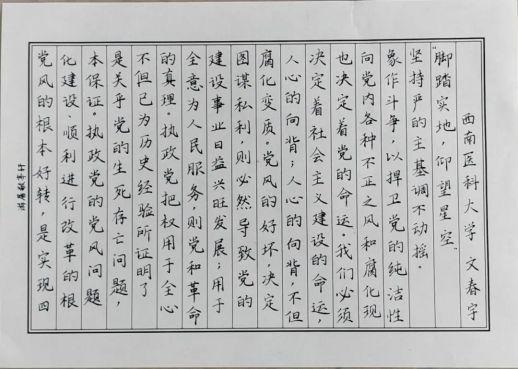 党风的根本好转，是实现四
化建设、顺利进行改革的根
本保证。执政党的党风问题
是关乎党的生死存亡问题，
不但已为历史经验所证明了
的真理。执政党把权用于全心
全意为人民服务，则党和革命
建设事业日益兴旺发展；用于
图谋私利，则必然导致党的
腐化变质。党风的好坏，决定
人心的向背；人心的向背，不但
决定着社会主义建设的命运，
也决定着党的命运。我们必须
向党内各种不正之风和腐化现
象作斗争，以捍卫党的纯洁性
坚持严的主基调不动摇。
“脚踏实地，仰望星空”
西南医科大学 文春宇